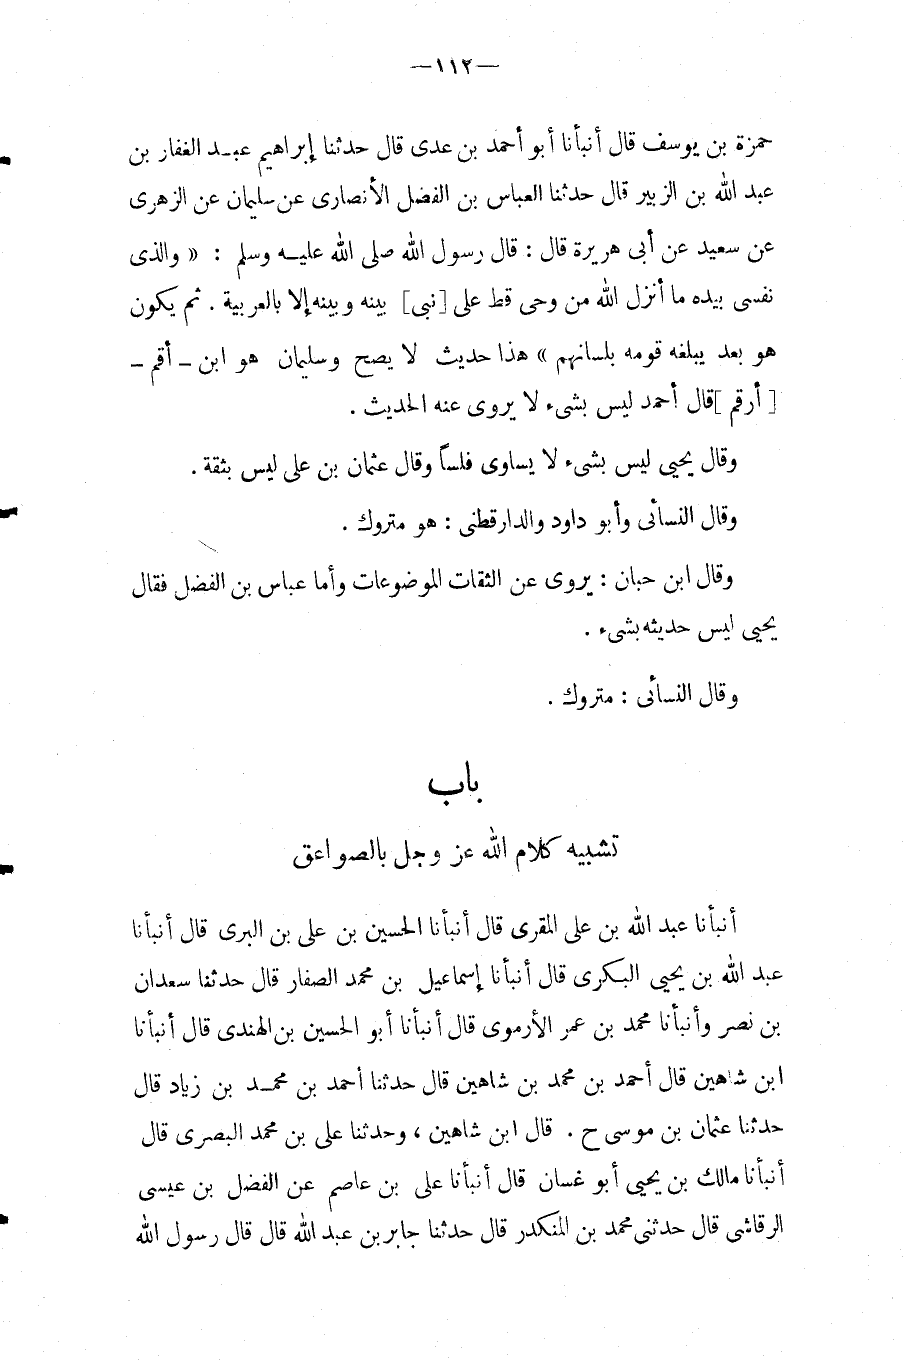 —١١٢—
حمزة بن يوسف قال أنبأنا أبو أحمد بن عدى قال حدثنا إبراهيم عبد الغفار بن
عبد الله بن الزبير قال حدثنا العباس بن الفضل الأنصارى عن سليمان عن الزهرى
عن سعيد عن أبى هريرة قال : قال رسول الله صلى الله عليه وسلم : « والذى
نفسى بيده ما أنزل الله من وحى قط على [نبى] بينه وبينه إلا بالعربية . ثم يكون
هو بعد يبلغه قومه بلسانهم » هذا حديث لا يصح وسليمان هو ابن ـ أقم ـ
[ أرقم ] قال أحمد ليس بشىء لا يروى عنه الحديث .
وقال يحيى ليس بشىء لا يساوى فلساً وقال عثمان بن على ليس بثقة .
وقال النسائى وأبو داود والدارقطنى : هو متروك .
وقال ابن حبان : يروى عن الثقات الموضوعات وأما عباس بن الفضل فقال
يحيى ليس حديثه بشىء .
وقال النسائى : متروك .
باب
تشبيه كلام الله عز وجل بالصواعق
أنبأنا عبد الله بن على المقرى قال أنبأنا الحسين بن على بن البرى قال أنبأنا
عبد الله بن يحيى البكرى قال أنبأنا إسماعيل بن محمد الصفار قال حدثنا سعدان
بن نصر وأنبأنا محمد بن عمر الأرموى قال أنبأنا أبو الحسين بن الهندى قال أنبأنا
ابن شاهين قال أحمد بن محمد بن شاهين قال حدثنا أحمد بن محمد بن زياد قال
حدثنا عثمان بن موسى ح . قال ابن شاهين ، وحدثنا على بن محمد البصرى قال
أنبأنا مالك بن يحيى أبو غسان قال أنبأنا على بن عاصم عن الفضل بن عيسى
الرقاشى قال حدثنى محمد بن المنكدر قال حدثنا جابر بن عبد الله قال قال رسول الله